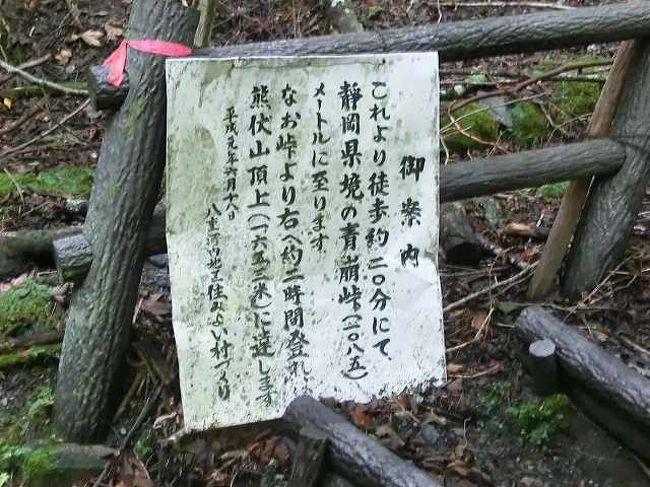 御案内
これより徒歩約二〇分にて、
静岡県境の青崩峠(一〇八五)
メートルに至ります
なお峠より右へ約二時間登れ
熊伏山頂上(一六五三米)に達します
平成元年六月十八日
八重河内地区住みよい村づくり